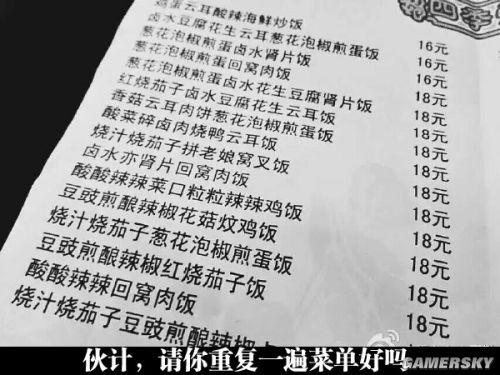 四季
鸡蛋云耳酸辣海鲜炒饭
卤水豆腐花生云耳葱花泡椒煎蛋饭 16元
葱花泡椒煎蛋卤水肾片饭 16元
葱花泡椒煎蛋回窝肉饭 16元
葱花泡椒煎蛋卤水花生豆腐肾片饭 18元
红烧茄子卤水豆腐花生云耳饭 18元
香菇云耳肉饼葱花泡椒煎蛋饭 18元
酸菜碎卤肉烧鸭云耳饭 18元
烧汁烧茄子拼老娘窝叉饭 18元
卤水亦肾片回窝肉饭 18元
酸酸辣辣菜口粒粒辣辣鸡饭 18元
豆豉煎酿辣椒花菇炆鸡饭 18元
烧汁烧茄子葱花泡椒煎蛋饭 18元
豆豉煎酿辣椒红烧茄子饭 18元
酸酸辣辣回窝肉饭 18元
烧汁烧茄子豆豉煎酿辣椒
伙计，请你重复一遍菜单好吗
GAMERSKY